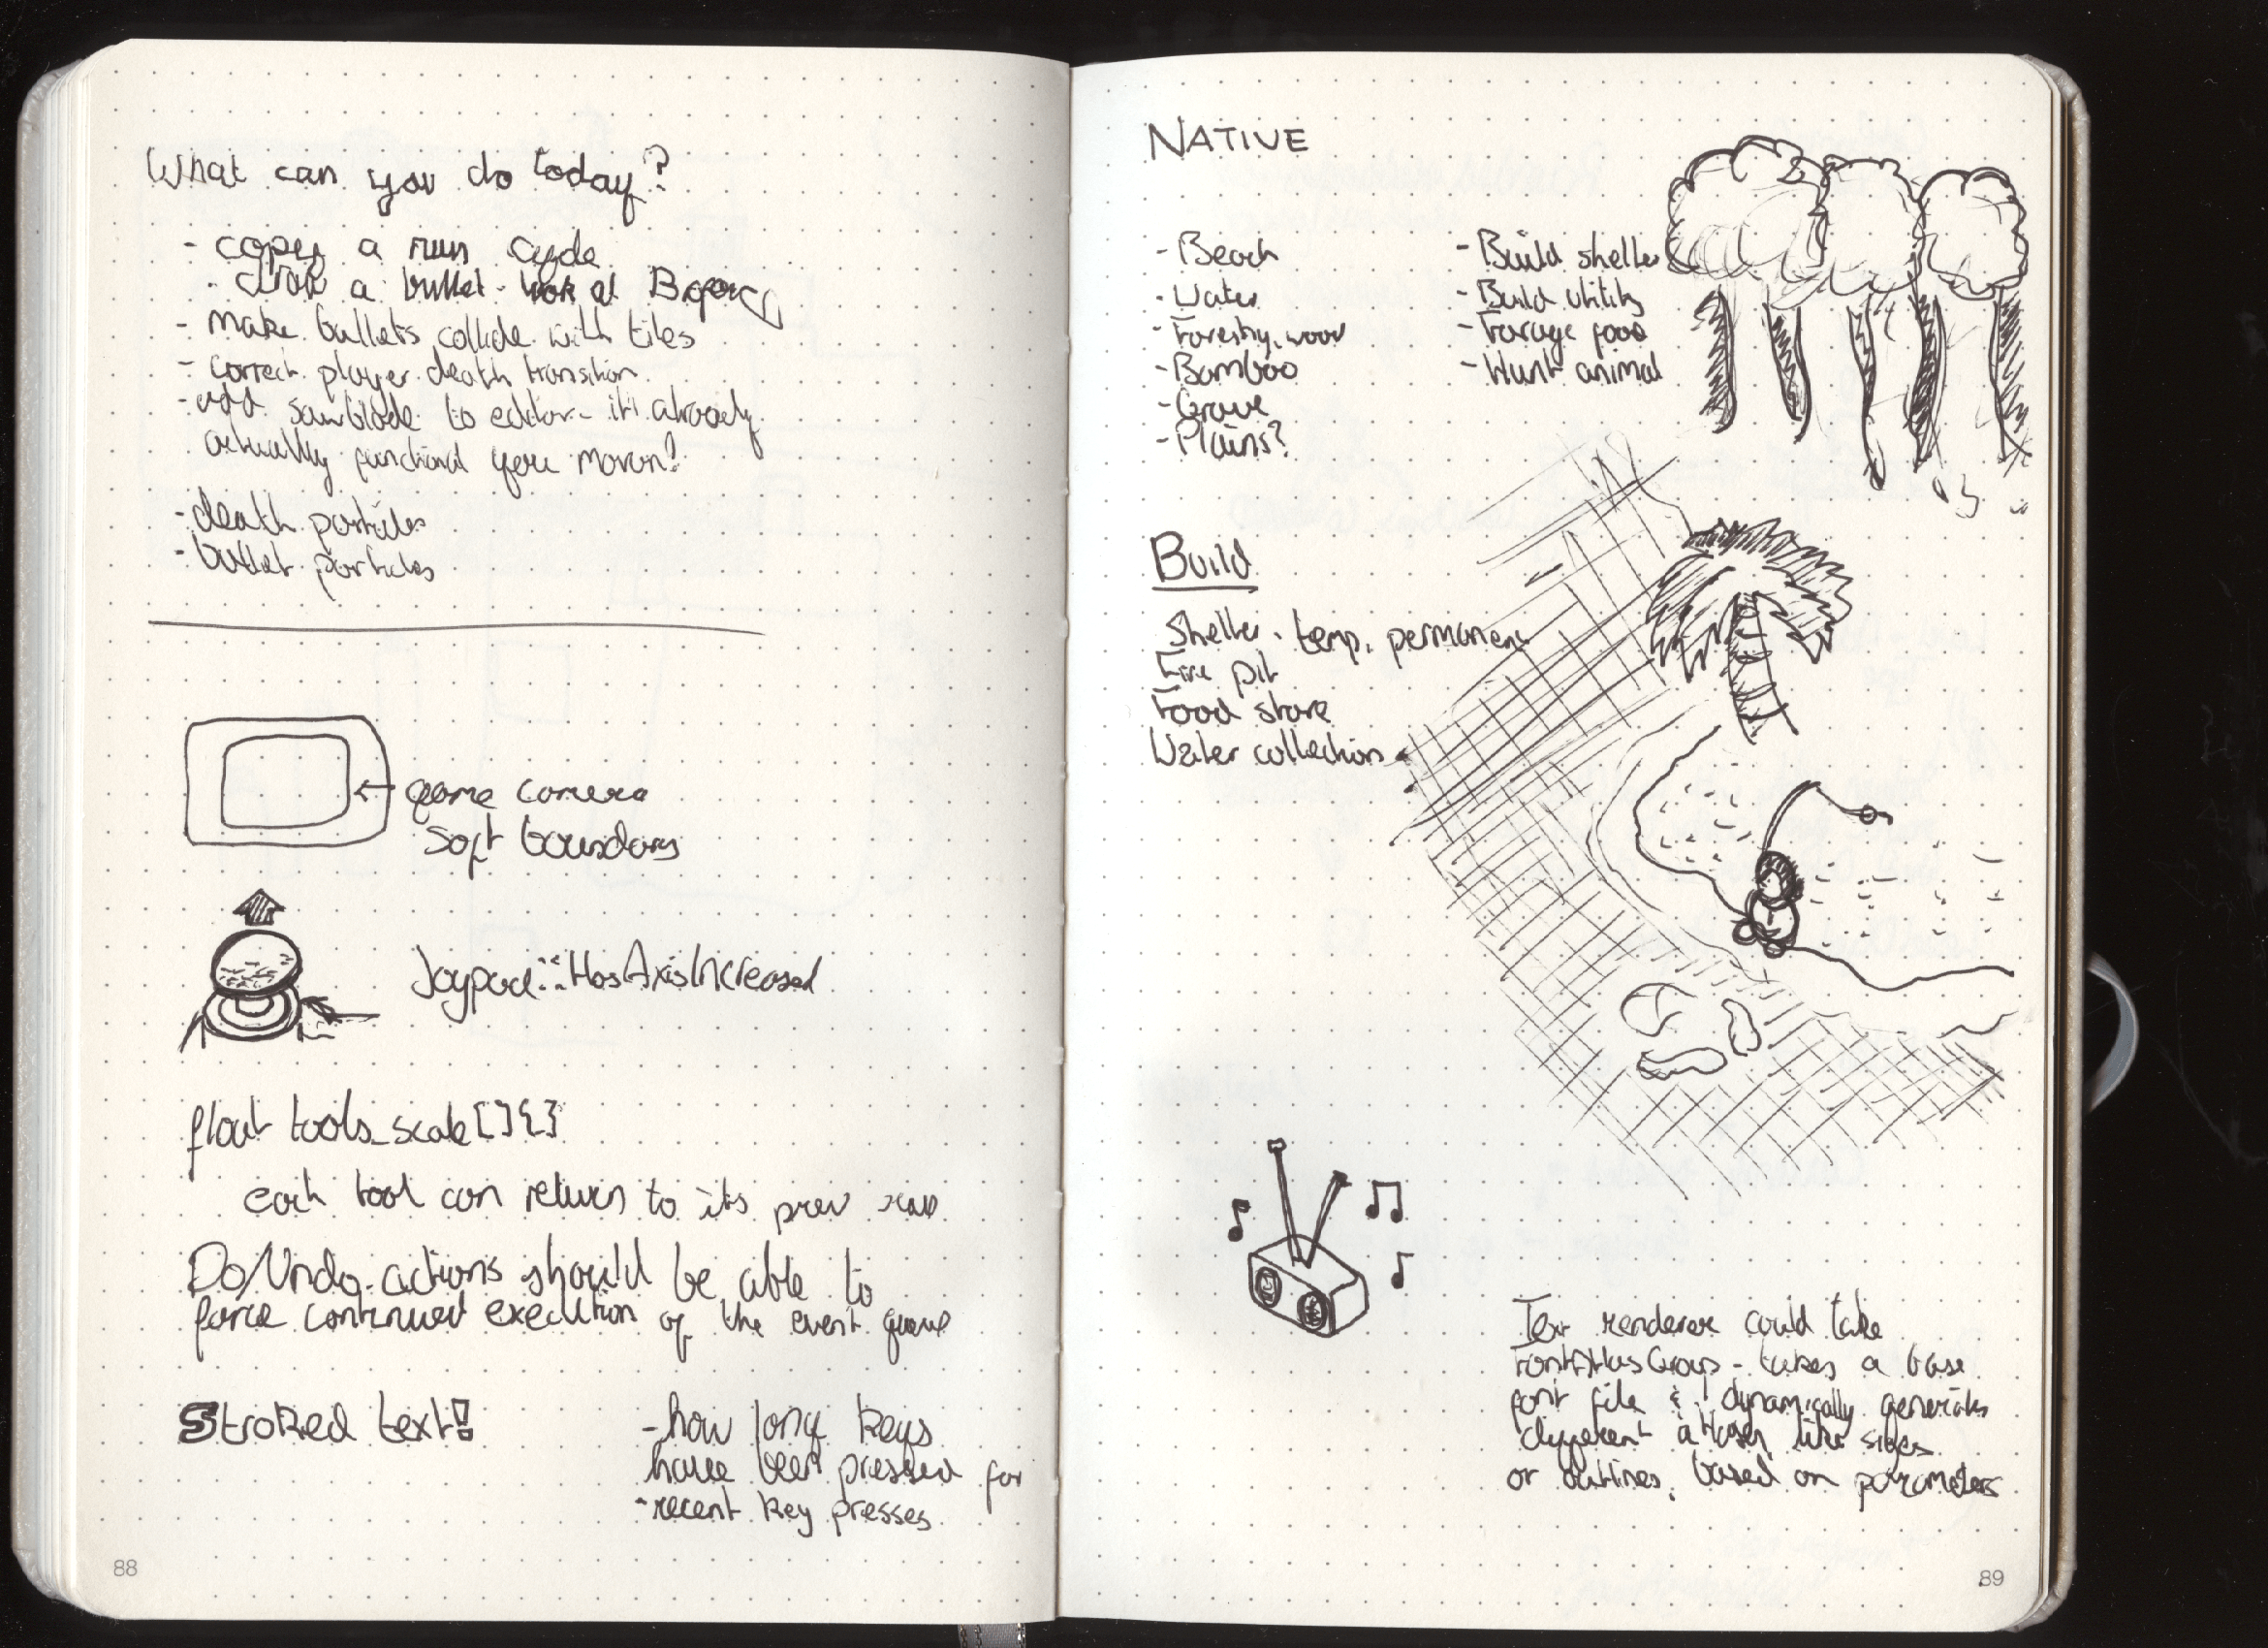 What can you do today?
- copy a run cycle
- draw a bullet - look at
- make bullets collide with tiles
- correct player death transition
- add sawblade to editor - it already
actually functional you moron?
- death particles
- bullet particles
game camera
soft boundary
Joypad::HasAxisIncreased
float tools_scale[]{}
each tool can return to its prev
Do/Undo actions should be able to
force continued execution of the event queue
Stroked text!
- how long keys
have been pressed for
- recent key presses
88
NATIVE
- Beach
- Water
- Forestry, wood
- Bamboo
- Plains?
- Build shelter
- Build utility
- Forage food
- Hunt animal
Build
Shelter - temp, permanent
Fire pit
Food store
Water collection
Text renderer could take
FontAtlasGroup - takes a base
font file & dynamically generates
different atlases like sizes
or outlines, based on parameters
89